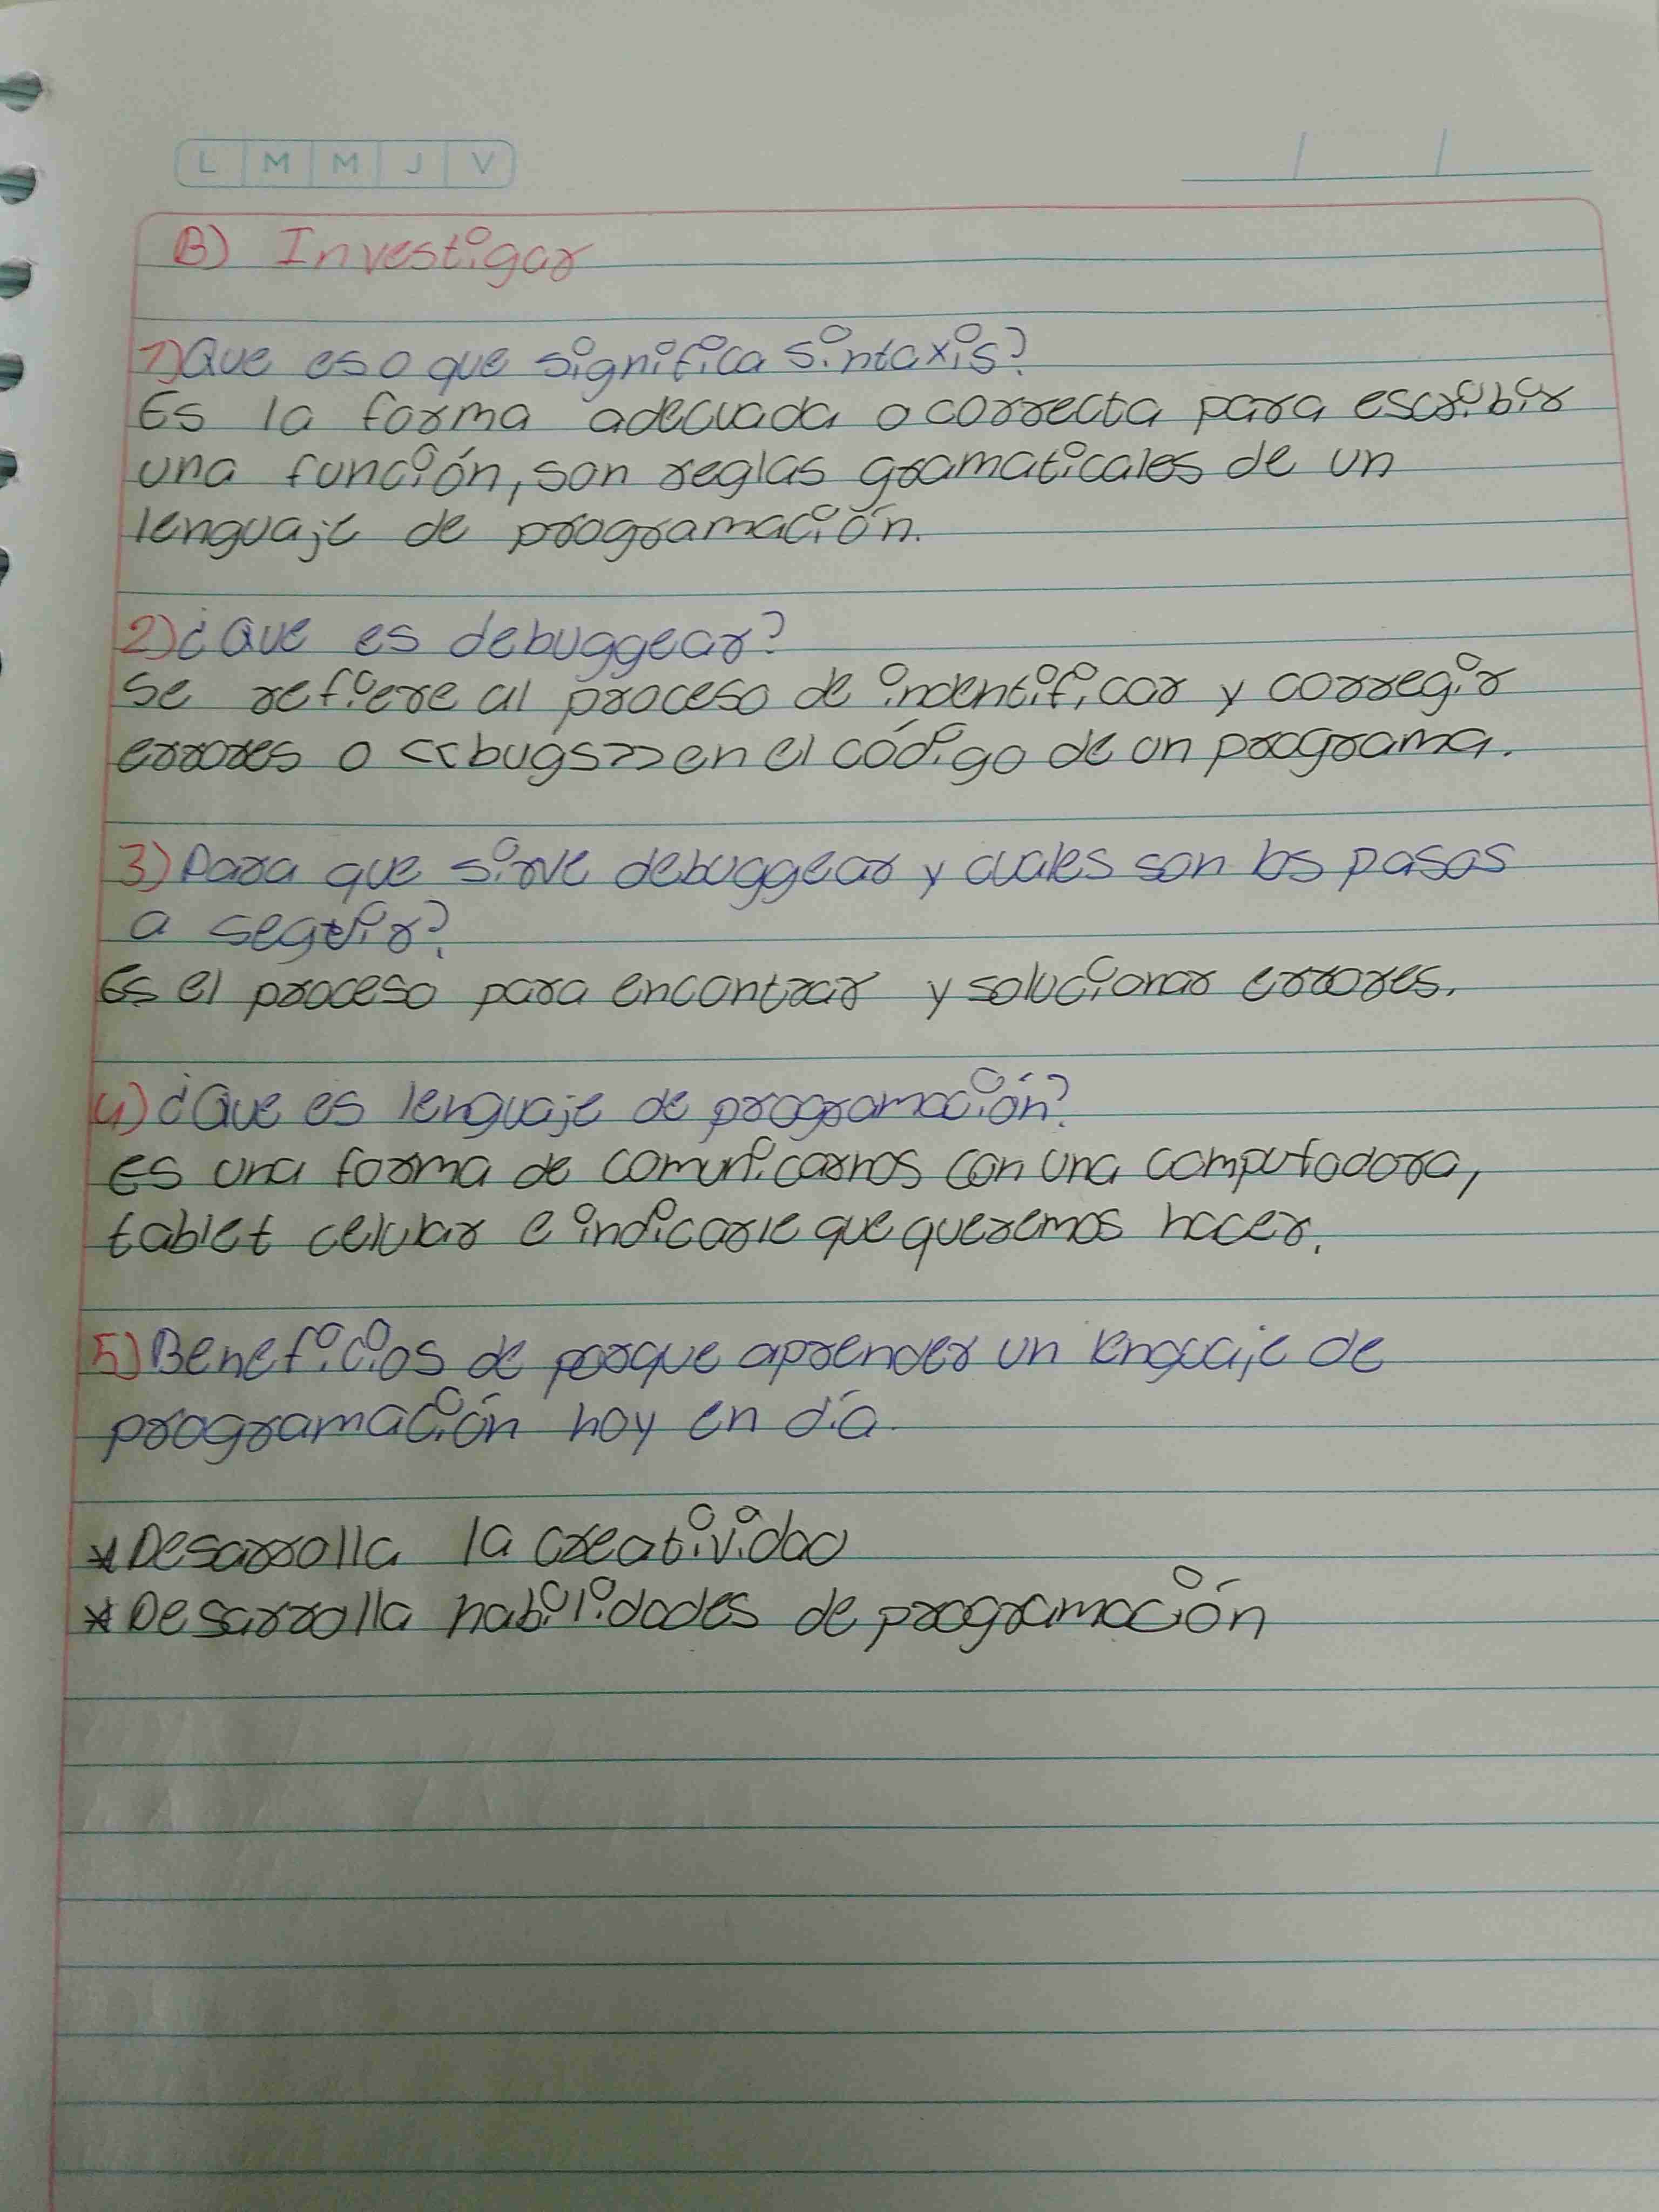 L M M J V
B) Investigar
1) Que es o que significa sintaxis?
Es la forma adecuada o correcta para escribir
una función, son reglas gramaticales de un
lenguaje de programación.
2) ¿Que es debuggear?
Se refiere al proceso de indentificar y corregir
errores o <<bugs>> en el código de un programa.
3) Para que sirve debuggear y cuales son los pasos
a seguir?
Es el proceso para encontrar y solucionar errores.
4) ¿Que es lenguaje de programación?
es una forma de comunicarnos con una computadora,
tablet celular e indicarle que queremos hacer.
5) Beneficios de porque aprender un lenguaje de
programación hoy en día
*Desarrolla la creatividad
*Desarrolla habilidades de programación